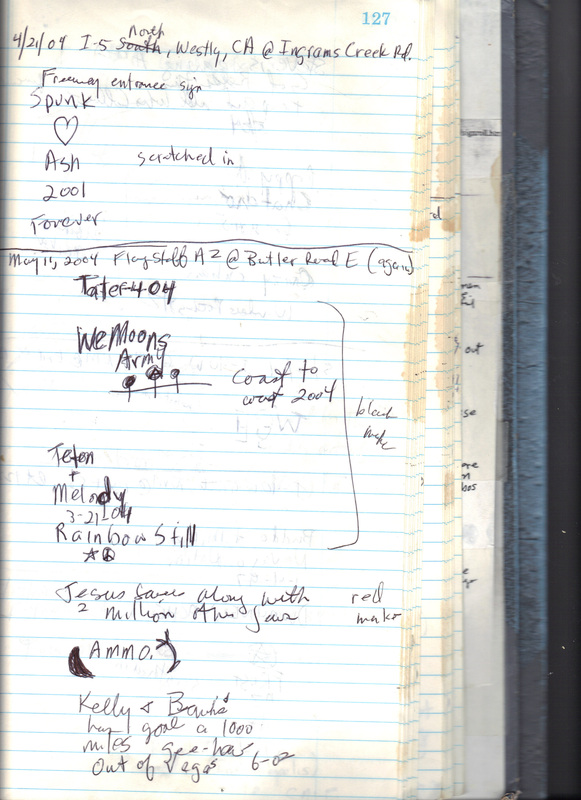 127
4/21/04 I-5 South North, Westly, CA @ Ingrams Creek Rd.
Freeway entrance sign
Spunk
♡
Ash scratched in
2001
Forever
May 15, 2004 Flagstaff AZ @ Butler Road E (again)
Tater 404
WeMoons
Army
Coast to
coast 2004
black
Teton
+
Melody
3-21-04
Rainbow Still
Jesus saves along with red
2 million other
Ammo.
Kelly &
has gone a 1000
miles
Out of Vegas 6-02